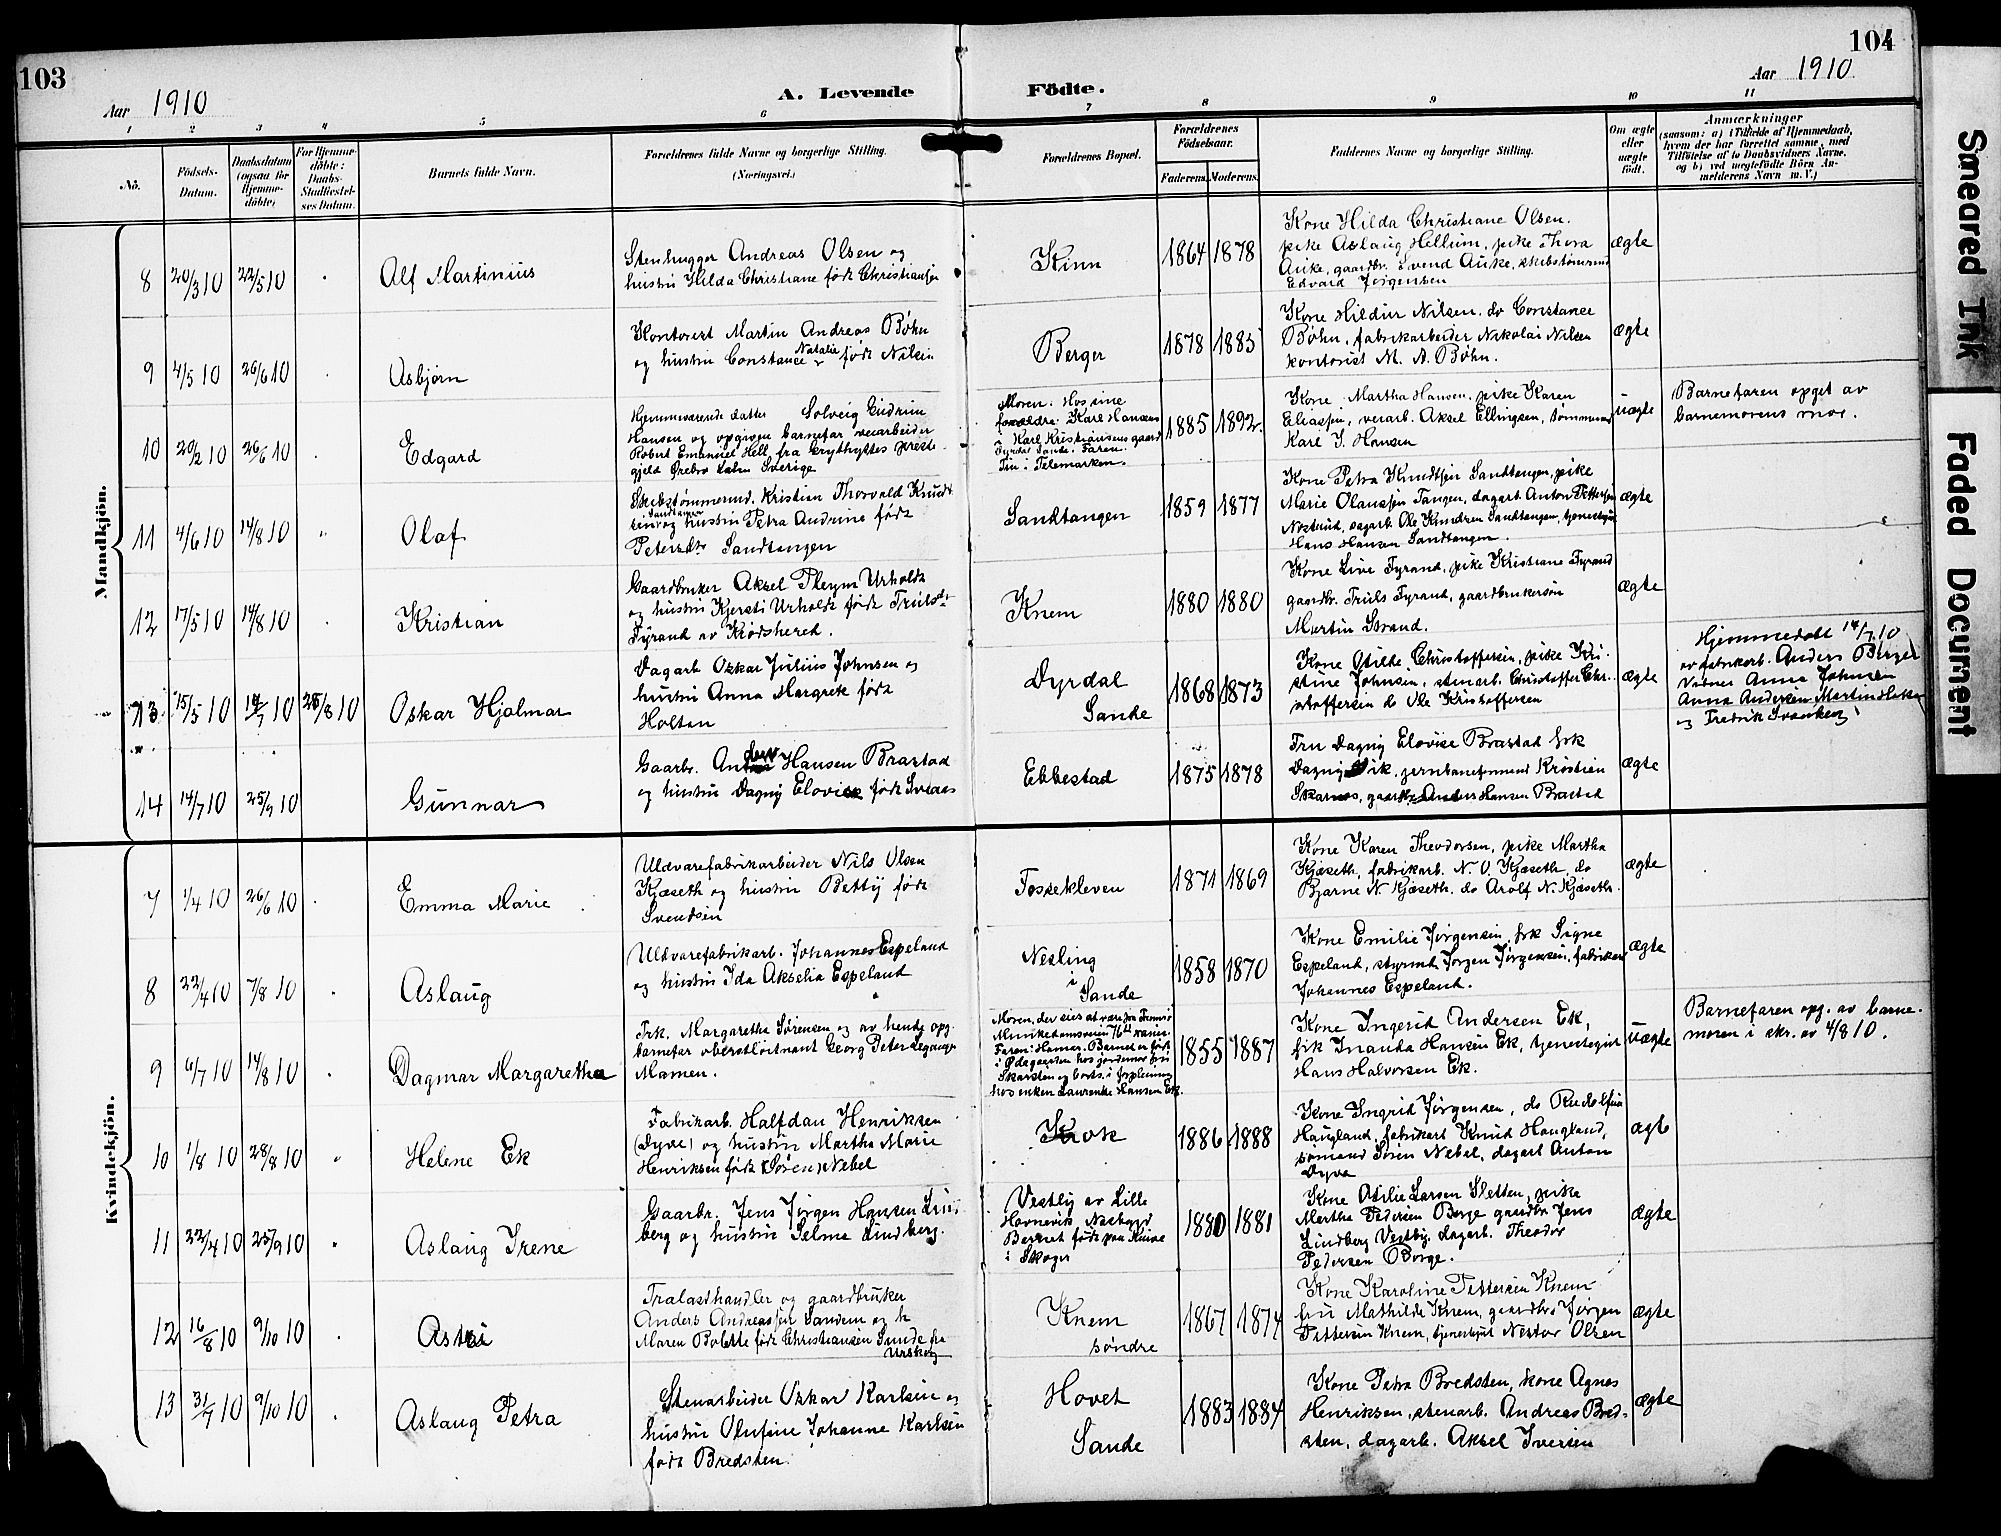 103
104
Aar 1910
A. Levende Födte.
Aar 1910
1 2 3 4 5 6 7 8 9 10 11
Nö.
Födsels-Datum.
Daabsdatum (ogsaa for Hjemmedöbte)
For Hjemmedöbte: Daabs-Stadfæstelses Datum.
Barnets fulde Navn.
Forældrenes fulde Navne og borgerlige Stilling.
(Næringsvei.)
Forældrenes Bopæl.
Forældrenes Födselsaar.
Faderens. Moderens.
Faddernes Navne og borgerlige Stilling.
Om ægte eller uægte födt.
Anmærkninger
(saasom: a) i Tilfælde af Hjemmedaab, hvem der har forrettet samme, med Tilföielse af to Daabsvidners Navne, og b) ved uægtefödte Börn Anmelderens Navn m. V.)
Mandkjön.
8 20/3 10 22/5 10 Alf Martinius
Stenhugger Andreas Olsen og
hustru Hilda Christiane født Christiansen
Kinn
1864 1878
Kone Hilda Christiane Olsen.
pike Aslaug Hellum, pike Thora
Auke, gaardbr. Svend Auke, skibstømmermd
Edvard Jørgensen
ægte
9 4/5 10 26/6 10 Asbjørn
Kontorist Martin Andreas Bøhn
og hustru Constance Natalie født Nilsen
Berger
1878 1885
Kone Hildur Nilsen. do Constance
Bøhn, fabrikarbeider Nikolai Nilsen
kontorist M. A. Bøhn.
ægte
10 20/2 10 26/6 10 Edgard
Hjemmeværende datter Solveig Gudrun
Hansen og opgiven barnefar verarbeider
Robert Emanuel Hell fra Grythyttes preste-
gjeld Ørebro Læben Sverige
Moren: Hos sine
forældre: Karl Hansens
i Karl Kristiansens gaard
Dyrdal Sande. Faren:
Tin i Telemarken.
1885 1892.
Kone Martha Hansen, pike Karen
Eliassen, verarb. Aksel Ellingsen, tømmermd
Karl J. Hansen
uægte
Barnefaren opget av
barnemorens mor.
11 4/6 10 14/8 10 Olaf
Skibstømmermd. Kristian Thorvald Knudt-
sen Sandtangen og hustru Petra Andrine født
Petersdtr Sandtangen
Sandtangen
1859 1877
Kone Petra Knudtsen Sandtangen, pike
Marie Olaussen Tangen, dagarb. Anton Pettersen
Nøstrud, sagarb. Ole Knudsen Sandtangen, tjenestegut
Hans Hansen Sandtangen.
ægte
12 17/5 10 14/8 10 Kristian
Gaardbruker Aksel Pleym Urholdt
og hustru Kjersti Urholdt født Trulsdtr
Fyrand av Krødsherred.
Knem
1880 1880
Kone Live Fyrand, pike Kristiane Fyrand
gaardbr. Truls Fyrand, gaardbrukersøn
Martin Strand.
ægte
13 15/5 10 14/7 10 28/8 10 Oskar Hjalmar
Dagarb Oskar Julius Johnsen og
hustru Anna Margrete født
Holtan
Dyrdal
Sande
1868 1873
Kone Otilde Christoffersen, pike Kri-
stine Johnsen, stenarb. Christoffer Chri-
stoffersen do Ole Kristoffersen
ægte
Hjemmedøbt 14/7 10
av fabrikarb. Anders Berger
Vidner Anna Johnsen
Anna Andersen Martin
og Fredrik Svanberg
14 14/7 10 25/9 10 Gunnar
Gaarbr. Anders Hansen Brastad
og hustru Dagny Elovise født Svaas
Ebbestad
1875 1878
Fru Dagny Elovise Brastad frk
Dagny Vik, jernbaneformand Kristian
Skarnes, gaardbr. Anders Hansen Brastad
ægte
Kvindekjön.
7 1/4 10 26/6 10 Emma Marie
Uldvarefabrikarbeider Nils Olsen
Kjæseth og hustru Betty født
Svendsen
Fossekleven
1871 1869
Kone Karen Theodorsen, pike Martha
Kjæseth, fabrikarb. N. O. Kjæseth, do
Bjarne N. Kjæseth. do Arolf N. Kjæseth.
ægte
8 22/4 10 7/8 10 Aslaug
Uldvarefabrikarb. Johannes Espeland
og hustru Ida Akselia Espeland
Nesling
i
Sande
1858 1870
Kone Emilie Jørgensen, frk Signe
Espeland, styrmd Jørgen Jørgensen, fabrikarb
Johannes Espeland.
ægte
9 6/7 10 14/8 10 Dagmar Margaretha
Frk. Margaretha Sørensen og av hende opg.
barnefar oberstløitnant Georg Peter Legangen
Mamen.
Moren, der sies at være fra Tromsø
Faren: Hamar. Barnet er født
i Ødegaarden hos jordemor fru
Skarsten og borts. i forpleining
hos enken Laurentse Hansen Ek.
1855 1887
Kone Ingerid Andersen Ek,
frk Inanda Hansen Ek, tjenestegut
Hans Halvorsen Ek.
uægte
Barnefaren opg. av barne-
moren i skr. av 4/8 10.
10 1/8 10 28/8 10 Helene Ek
Fabrikarb. Halfdan Henriksen
(Dyve) og hustru Martha Marie
Henriksen født (Søren) Nebel
Krok
1886 1888
Kone Ingrid Jørgensen, do Rudolfine
Haugland, fabrikarb Knud Haugland,
sømand Søren Nebel, dagarb Anton
Dyve
ægte
11 22/4 10 25/9 10 Aslaug Irene
Gaarbr. Jens Jørgen Hansen Lind-
berg og hustru Selma Lindberg.
Vestby av Lille
Havnevik, Nesbygd
Barnet født paa
i Skoger
1880 1881
Kone Otilie Larsen Sletten, pike
Martha Pedersen Berge gaardbr Jens
Lindberg Vestby, dagarb. Theodor
Pedersen Borge.
ægte
12 16/8 10 9/10 10 Astri
Trælasthandler og gaardbruker
Anders Andreassen Sanden og h
Maren Bolette født Christiansen Sunde fra
Urskog
Knem
søndre
1867 1874
Kone Karoline Pettersen Knem
fru Mathilde Knem, gaardbr. Jørgen
Pettersen Knem, tjenestegut Nestor Olsen
ægte
13 31/7 10 9/10 10 Aslaug Petra
Stenarbeider Oskar Karlsen og
hustru Olufine Johanne Karlsen
født Bredsten.
Hovet
Sande
1883 1884
Kone Petra Bredsten, kone Agnes
Henriksen, stenarb. Andreas Bred-
sten, dagarb. Aksel Iversen
ægte
Smeared Ink
Faded Document